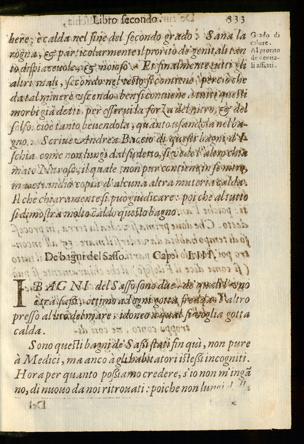 Libro secondo. 833
bere; è calda nel fine del secondo grado; Sana la
rogna, & particolarmente il prorito de genitali tan-
to dispiaceuole, & noioso. Et finalmente tutti gli
altri mali, secondo nel testo si contiene, perciò che
da tal minera
morbi già detti, per esserui la forza del nitro, & del
solfo, cioè tanto beuendola, quanto usandola nel ba-
gno. Scriue Andrea Baccio di questi bagni d'I-
schia come non lungi dal sudetto, si vede l'altro chia
mato Nitroso, il quale
in uero copia d'alcuna altra materia calda.
Il che chiaramente si può giudicare: poi che al tutto
si dimostra molto caldo questo bagno.
Grado di
calore.
Al prorito
de genita-
li affetti.
De bagni del Sasso. Cap. LIII.
I BAGNI del Sasso sono due, de quali l'uno
è tra sassi, ottimo ad ogni gotta fredda: l'altro
presso al lito del mare: idoneo a qual si voglia gotta
calda.
Sono questi bagni de Sassi stati fin quì, non pure
à Medici, ma anco à gli habitatori istessi incogniti.
Hora per quanto possiamo credere, s'io non m'ingā
no, di nuouo da noi ritrouati: poiche non lungi